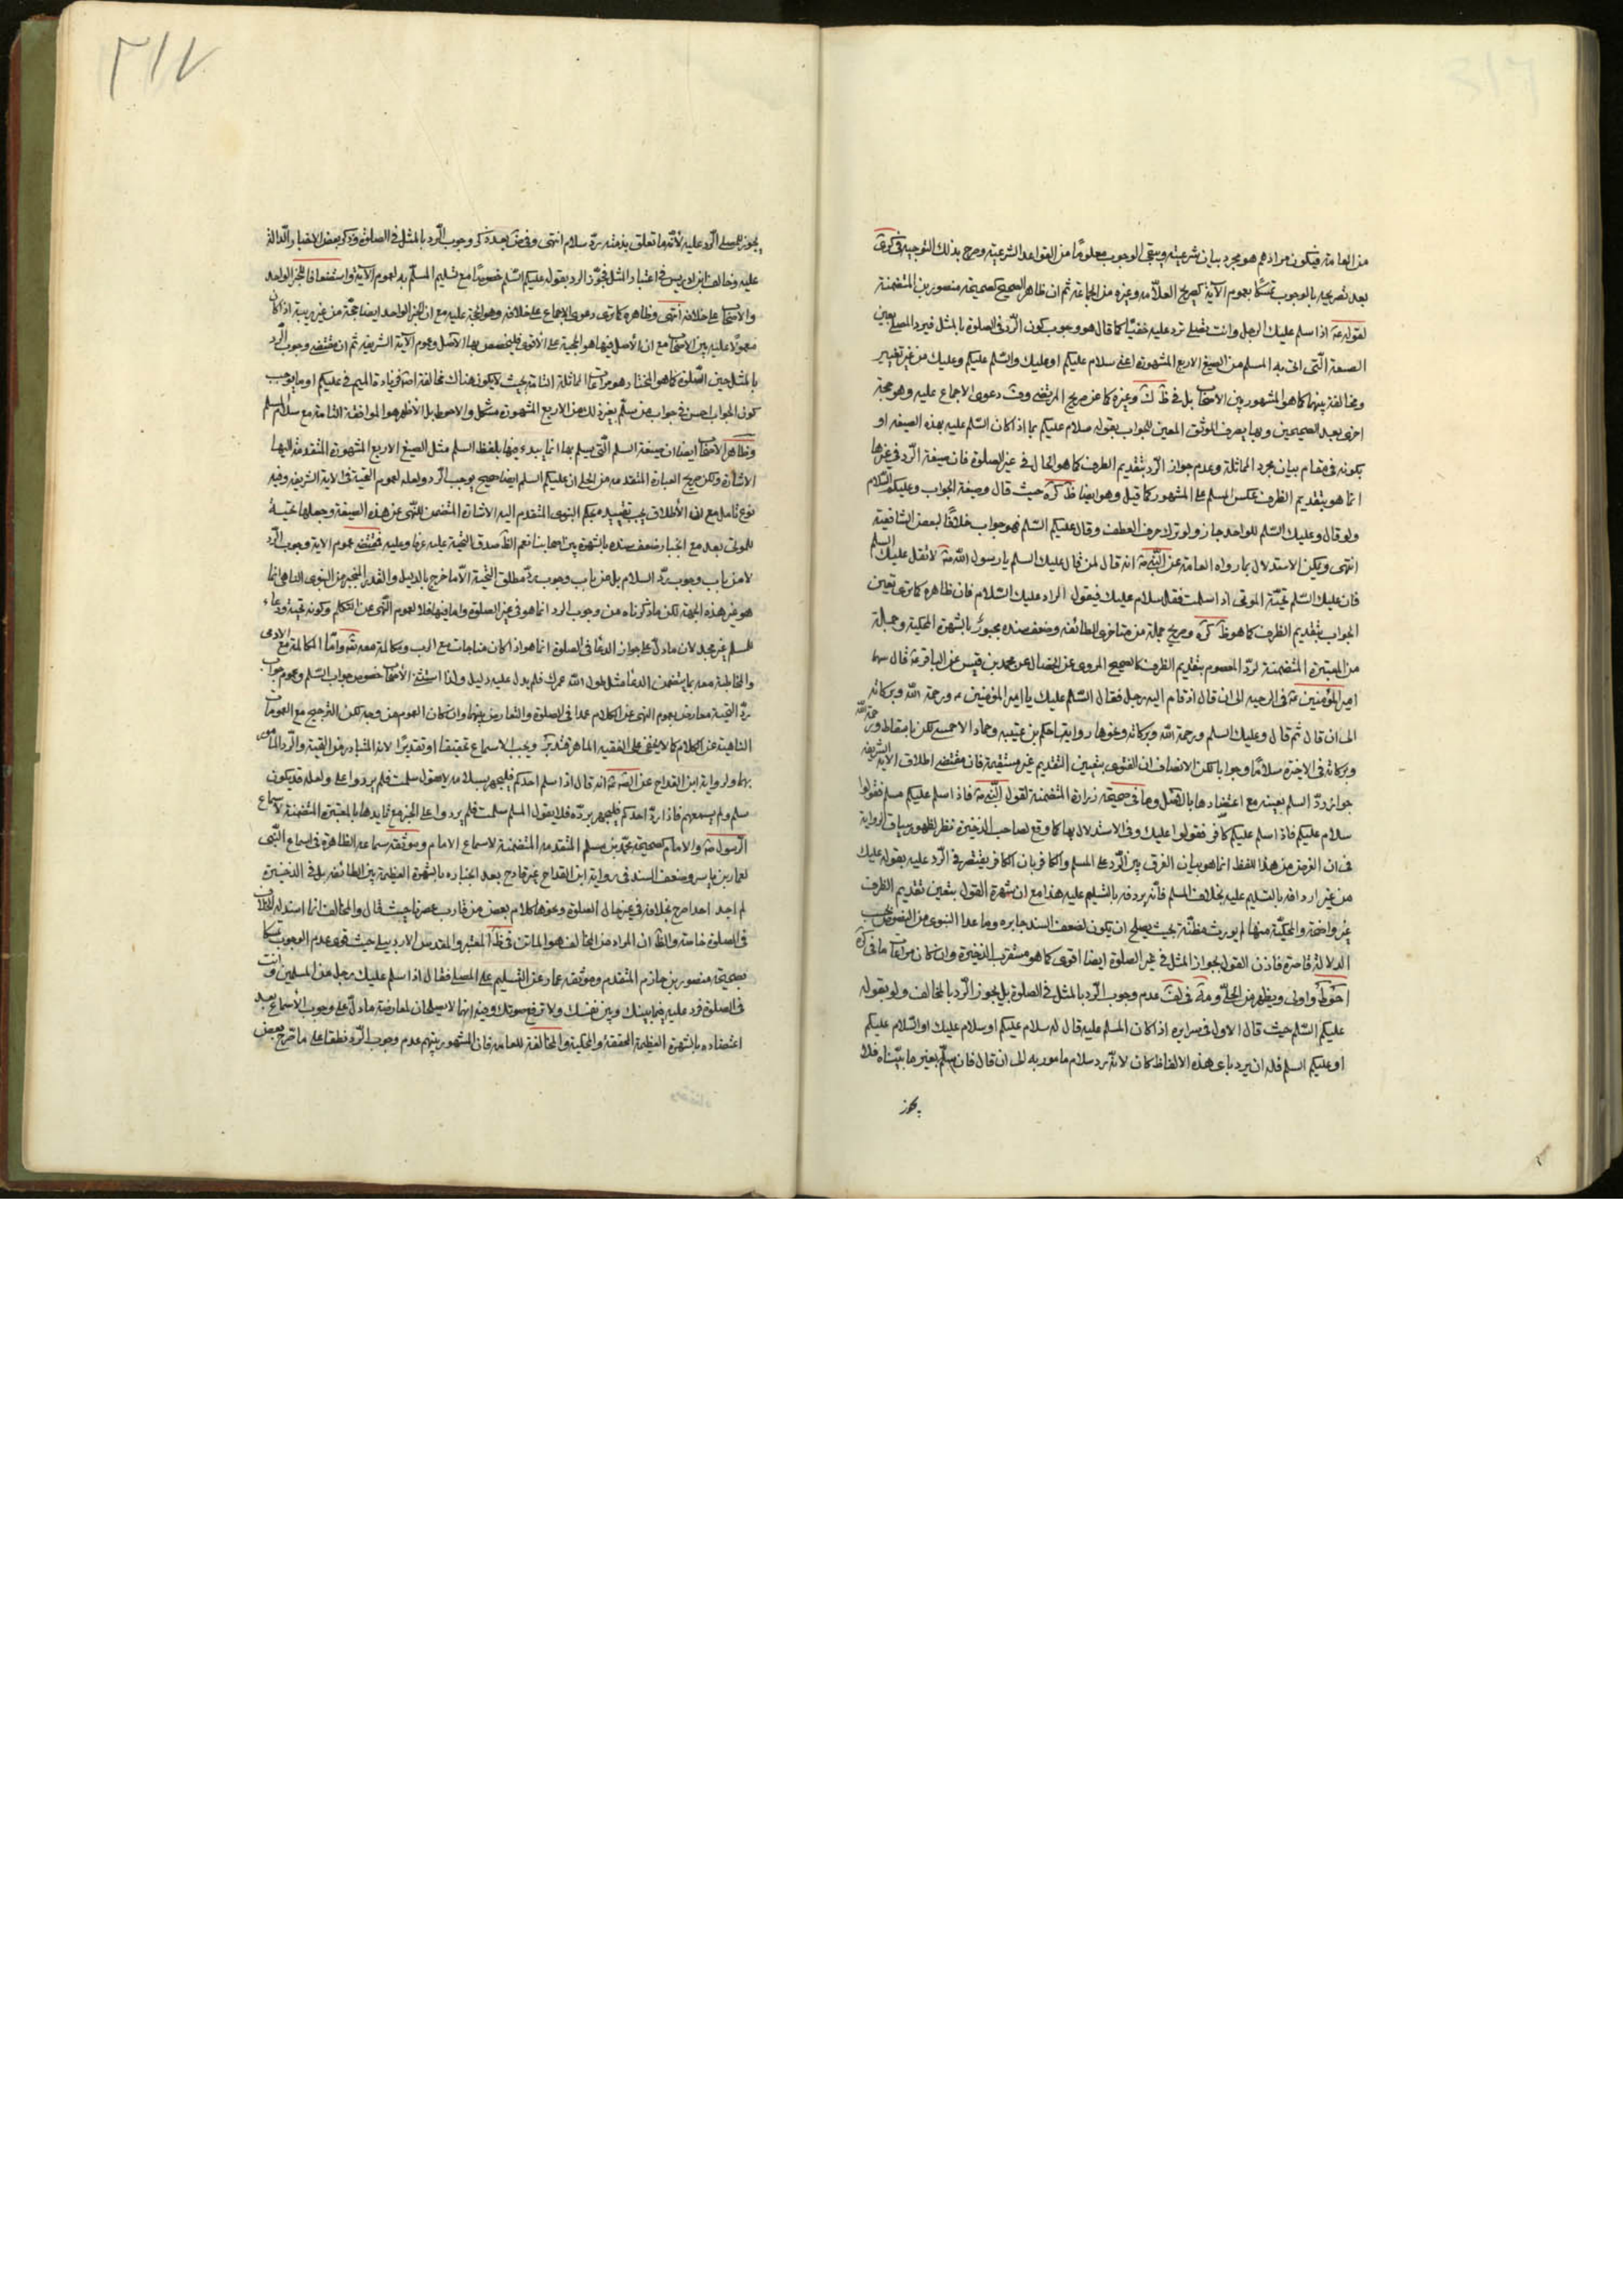 من العامة فيكون مرادهم هو مجرد بيان شرعيته ويبقى الوجوب معلوما من القواعد الشرعية وصرح بذلك التوجيه في كرى
بعد تصريحه بالوجوب تمسكا بعموم الآية كصريح العلامة وغيره من الجماعة ثم ان ظاهر الصحيح كصحيحة منصور بن المتضمنة
لقوله ع اذا سلم عليك الرجل وانت تصلي ترد عليه خفيا كما قال هو وجوب كون الرد في الصلوة بالمثل فيرد المصلي بعين
الصيغة التي اتى به المسلم من الصيغ الاربع المشهورة اعني سلام عليكم او عليك والسلم عليكم وعليك من غير تغيير
ومخالفة بينهما كما هو المشهور بين الاصحاب بل في وغيره كما عن صريح المرتضى دعوى الاجماع عليه وهو حجة
اخرى بعد الصحيحين وبها يصرف الموثق المعين للجواب بقوله سلام عليكم بما اذا كان السلم عليه بهذه الصيغة او
بكونه في مقام بيان مجرد المماثلة وعدم جواز الرد بتقديم الظرف كما هو الحال في غير الصلوة فان صيغة الرد في غيرها
انما هو بتقديم الظرف عكس المسلم على المشهور كما قيل وهو ايضا ظ كره حيث قال وصيغة الجواب وعليكم السلام
ولو قال وعليك السلم للواحد جاز ولو ترك حرف العطف وقال عليكم السلم فهو جواب خلافا لبعض الشافعية
انتهى ويمكن الاستدلال بما رواه العامة عن النبي ص انه قال لمن قال عليك السلم يا رسول الله ص لا تقل عليك السلم
فان عليك السلم تحية الموتى اذا سلمت فقل سلام عليك فيقول الراد عليك السلام فان ظاهره كما ترى تعين
الجواب بتقديم الظرف كما هو ظ كره وصريح جملة من متاخرى الطائفة وضعف سنده مجبور بالشهرة المحكية وجملة
من المعتبرة المتضمنة لرد المعصوم بتقديم الظرف كالصحيح المروى عن الخصال عن محمد بن قيس عن الباقر ع قال بينا
امير المؤمنين ع في الرحبة الى ان قال اذ قام اليه رجل فقال السلم عليك يا امير المؤمنين ع ورحمة الله وبركاته
الى ان قال ثم قال وعليك السلم ورحمة الله وبركاته ونحوها رواية الحكم بن عتيبه وحماد الاحمسي لكن باسقاط ورحمة الله
وبركاته في الاخيرة سلاما وجوابا لكن الانصاف ان الفتوى بتعيين التقديم غير مستقيمة فان مقتضى اطلاق الاية الشريفة
جواز رد السلم بعينه مع اعتضادها بالاصل وما في صحيحة زرارة المتضمنة لقول النبي ص فاذا سلم عليكم مسلم فقولوا
سلام عليكم فاذا سلم عليكم كافر فقولوا عليك وفي الاستدلال بها كما وقع لصاحب الذخيرة نظر لظهور سياق الرواية
في ان الغرض من هذا اللفظ انما هو بيان الفرق بين الرد على المسلم والكافر بان الكافر يقتصر في الرد عليه بقوله عليك
من غير اردافه بالتسليم عليه بخلاف المسلم فانه يردفه بالتسليم عليه هذا مع ان شهرة القول بتعين تقديم الظرف
غير واضحة والمحكية منها لم يورث مظنة بحيث يصلح ان يكون لضعف السند جابره وما عدا النبوى من النصوص بحسب
الدلالة قاصرة فاذن القول بجواز المثل في غير الصلوة ايضا اقوى كما هو مستقرب الذخيرة وان كان مراعاة ما في كره
احوط واولى ويظهر من الحلى و في لف عدم وجوب الرد بالمثل في الصلوة بل يجوز الرد بالمخالف ولو بقوله
عليكم السلم حيث قال الاول في سرايره اذا كان المسلم عليه قال له سلام عليكم او سلام عليك او السلام عليكم
او عليكم السلم فله ان يرد باى هذه الالفاظ كان لانه رد سلام مامور به الى ان قال فان سلم بغير ما بيناه فلا
يجوز
٣١٧
يجوز للمصلي الرد عليه لانه ما تعلق بذمته رد سلام انتهى وفي بعد ذكر وجوب الرد بالمثل في الصلوة وذكر بعض الاخبار الدالة
عليه وخالف ابن ادريس في اعتبار المثل فجوز الرد بقوله عليكم السلم خصوصا مع تسليم المسلم به لعموم الآية واستضعافا للخبر الواحد
والاصحاب على خلافه انتهى وظاهره كما ترى دعوى الاجماع على خلافه وهو الحجة عليه مع ان الخبر الواحد ايضا حجة من غير ريبة اذا كان
معمولا عليه بين الاصحاب مع ان الاصل فيها هو الحجية على الاقوى فليخصص بها الاصل وعموم الآية الشريفة ثم ان مقتضى وجوب الرد
بالمثل حين الصلوة كما هو المختار هو مراعات المماثلة التامة بحيث لا يكون هناك مخالفة اصلا وزيادة الميم في عليكم او ما يوجب
كون الجواب احسن في جواب من سلم بغير ذلك من الاربع المشهورة مشكل والاحوط بل الاظهر هو الموافقة التامة مع سلام المسلم
وظاهر الاصحاب ايضا ان صيغة السلم التي يسلم بها انما يبدء فيها بلفظ السلم مثل الصيغ الاربع المشهورة المتقدمة اليها
الاشارة ولكن صريح العبارة المتقدمة من الحلى ان عليكم السلم ايضا صحيح يوجب الرد ولعله لعموم التحية في الاية الشريفة وفيه
نوع تامل مع ان الاطلاق يجب تقييده بحكم النبوى المتقدم اليه الاشارة المتضمن للنهى عن هذه الصيغة وجعلها تحية
للموتى بعد مع انجبار ضعف سنده بالشهرة بين اصحابنا نعم الظ صدق التحية عليه عرفا وعليه فمقتضى عموم الاية وجوب الرد
لا من باب وجوب رد السلام بل من باب وجوب رد مطلق التحية الا ما خرج بالدليل والقدر المخرج من النبوى الناهي انما
هو غير هذه الجهة لكن ما ذكرناه من وجوب الرد انما هو في غير الصلوة واما فيها فلا لعموم النهى عن التكلم وكونه تحية ودعاء
للمسلم غير مجد لان ما دل على جواز الدعا في الصلوة انما هو اذا كان مناجات مع الرب ومكالمة معه تع واما المكالمة مع الادمى
والمخاطبة معه بما يتضمن الدعا مثل طول الله عمرك فلم يدل عليه دليل ولذا استثنى الاصحاب خصوص جواب السلم وعموم جواب
رد التحية معارض بعموم النهى عن الكلام عمدا في الصلوة والتعارض بينهما وان كان العموم من وجه لكن الترجيح مع العمومات
الناهية عن الكلام كما لا يخفى على الفقيه الماهر فتدبر ويجب الاسماع تحقيقا او تقديرا لانه المتبادر من التحية والرد المامور
بهما ولرواية ابن القداح عن الص ع انه قال اذا سلم احدكم فليجهر بسلامه لا يقول سلمت فلم يردوا على ولعله قد يكون
سلم ولم يسمعهم فاذا رد احدكم فليجهر برده فلا يقول المسلم سلمت فلم يردوا على الخبر مع تايدها بالمعتبرة المتضمنة لاسماع
الرسول ص والامام كصحيحة محمد بن مسلم المتقدمة المتضمنة لاسماع الامام وموثقة سماعه الظاهرة في اسماع النبى
لعمار بن ياسر وضعف السند في رواية ابن القداح غير قادح بعد انجباره بالشهرة العظيمة بين الطائفة بل في الذخيرة
لم اجد احدا صرح بخلافه في غير حال الصلوة ونحوها كلام بعض من قارب عصرنا حيث قال والمخالف انما استدل للخلاف
في الصلوة خاصة والظ ان المراد من المخالف هو الماتن في ظ المعتبر والمقدس الاردبيلي حيث قوى عدم الوجوب تمسكا
بصحيحة منصور بن حازم المتقدم وموثقة عمار عن التسليم على المصلي فقال اذا سلم عليك رجل من المسلمين وانت
في الصلوة فرد عليه فيما بينك وبين نفسك ولا ترفع صوتك وفيه انهما لا يصلحان لمعارضة ما دل على وجوب الاسماع بعد
اعتضاده بالشهرة العظيمة المحققة والمحكية والمخالفة للعامة فان المشهور بينهم عدم وجوب الرد نطقا على ما صرح بعض